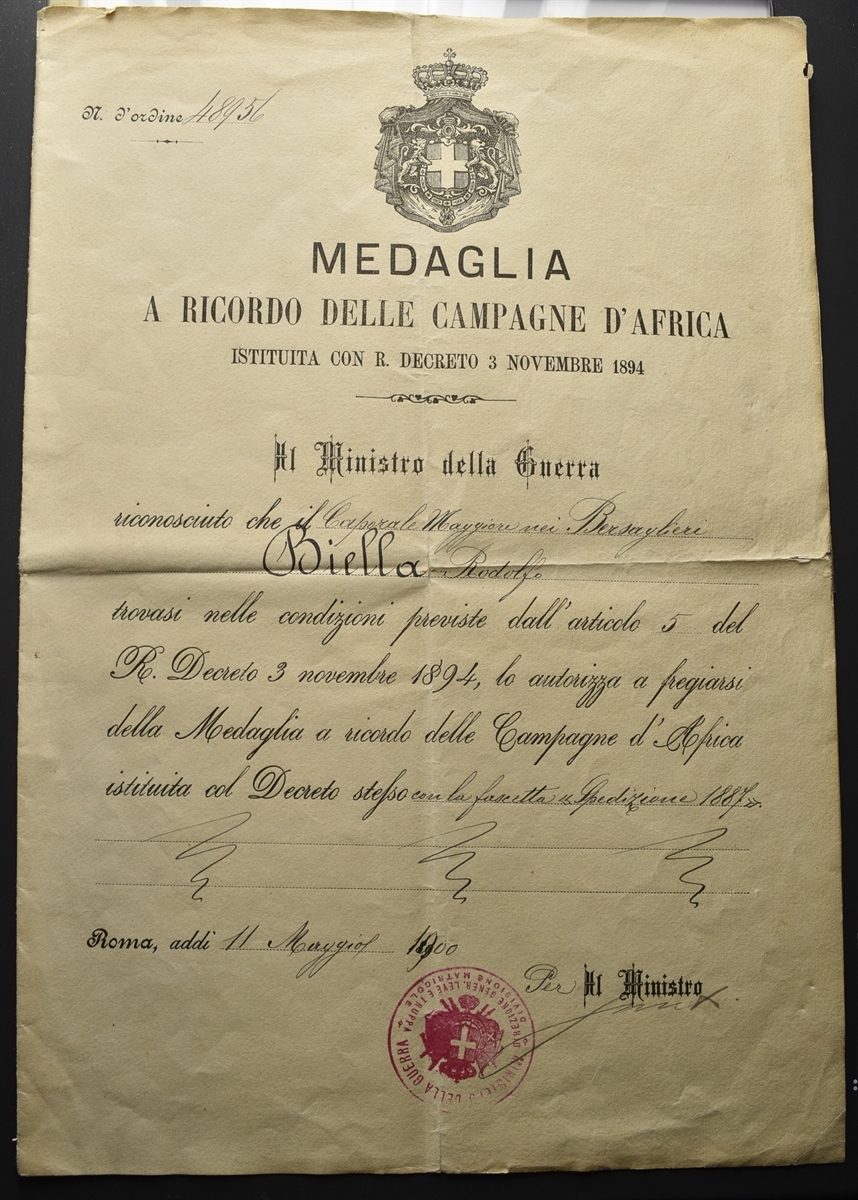 N. d'ordine 48956
MEDAGLIA
A RICORDO DELLE CAMPAGNE D'AFRICA
ISTITUITA CON R. DECRETO 3 NOVEMBRE 1894
Il Ministro della Guerra
riconosciuto che il Caporale Maggiore nei Bersaglieri
Biella Rodolfo
trovasi nelle condizioni previste dall'articolo 5 del
R. Decreto 3 novembre 1894, lo autorizza a fregiarsi
della Medaglia a ricordo delle Campagne d'Africa
istituita col Decreto stesso con la fascetta « Spedizione 1887 ».
Roma, addì 11 Maggio 1900
Per Il Ministro
MINISTERO DELLA GUERRA
DIREZIONE GENER. LEVE E TRUPPA
DIVISIONE MATRICOLE